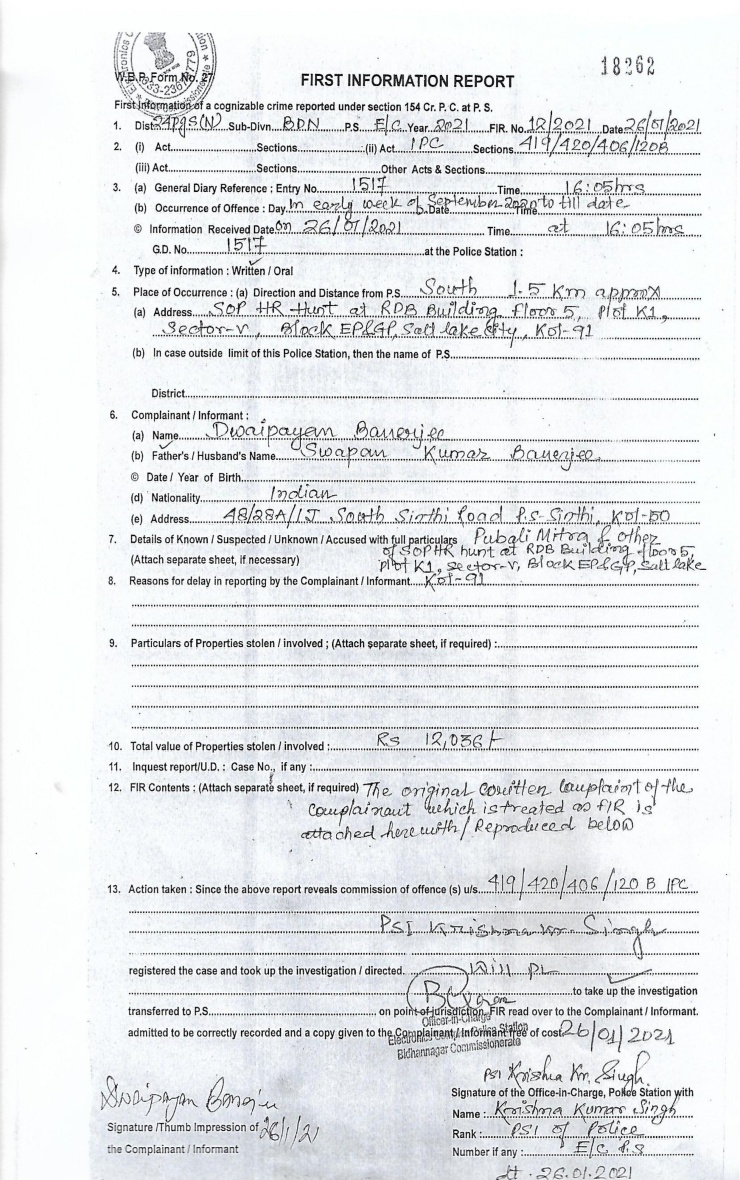 18262
W.B.P. Form No. 27
FIRST INFORMATION REPORT
First Information of a cognizable crime reported under section 154 Cr. P. C. at P. S.
1. Dist. 24pgs(N) Sub-Divn. BDN P.S. E/C Year 2021 FIR. No. 12/2021 Date 26/01/2021
2. (i) Act Sections (ii) Act IPC Sections 419/420/406/120B
(iii) Act Sections Other Acts & Sections
3. (a) General Diary Reference : Entry No. 1517 Time 16:05hrs
(b) Occurrence of Offence : Day In early week of September 2020 to till date Date Time
© Information Received Date On 26/01/2021 Time at 16:05hrs
G.D. No. 1517 at the Police Station :
4. Type of information : Written / Oral
5. Place of Occurrence : (a) Direction and Distance from P.S. South 1.5 Km approx
(a) Address SOP HR Hunt at RDB Building, floor 5, Plot K1,
Sector-V, Block EP&GP, Salt lake City, Kol-91
(b) In case outside limit of this Police Station, then the name of P.S.
District
6. Complainant / Informant :
(a) Name Dwaipayan Banerjee
(b) Father's / Husband's Name Swapan Kumar Banerjee
© Date / Year of Birth
(d) Nationality Indian
(e) Address 48/28A/1J South Sinthi Road P.S-Sinthi, Kol-50
7. Details of Known / Suspected / Unknown / Accused with full particulars Pubali Mitra & other
of SOP HR hunt at RDB Building floor 5,
(Attach separate sheet, if necessary) plot K1, Sector-V, Block EP&GP, Salt lake
8. Reasons for delay in reporting by the Complainant / Informant Kol-91
9. Particulars of Properties stolen / involved ; (Attach separate sheet, if required) :
10. Total value of Properties stolen / involved : Rs 12,036/-
11. Inquest report/U.D. : Case No., if any :
12. FIR Contents : (Attach separate sheet, if required) The original written complaint of the
complainant which is treated as FIR is
attached here with/Reproduced below
13. Action taken : Since the above report reveals commission of offence (s) u/s. 419/420/406/120 B IPC
PSI Krishna Kr. Singh
registered the case and took up the investigation / directed. Will Pl.
to take up the investigation
transferred to P.S. on point of jurisdiction, FIR read over to the Complainant / Informant.
Officer-in-Charge
admitted to be correctly recorded and a copy given to the Complainant / Informant free of cost 26/01/2021
Electronics Complex Police Station
Bidhannagar Commissionerate
PSI Krishna Kr. Singh
Signature of the Office-in-Charge, Police Station with
Dwaipayan Banerjee
Name : Krishna Kumar Singh
Signature /Thumb Impression of 26/1/21
Rank : PSI of Police
the Complainant / Informant
Number if any : E/C P.S
dt - 26.01.2021